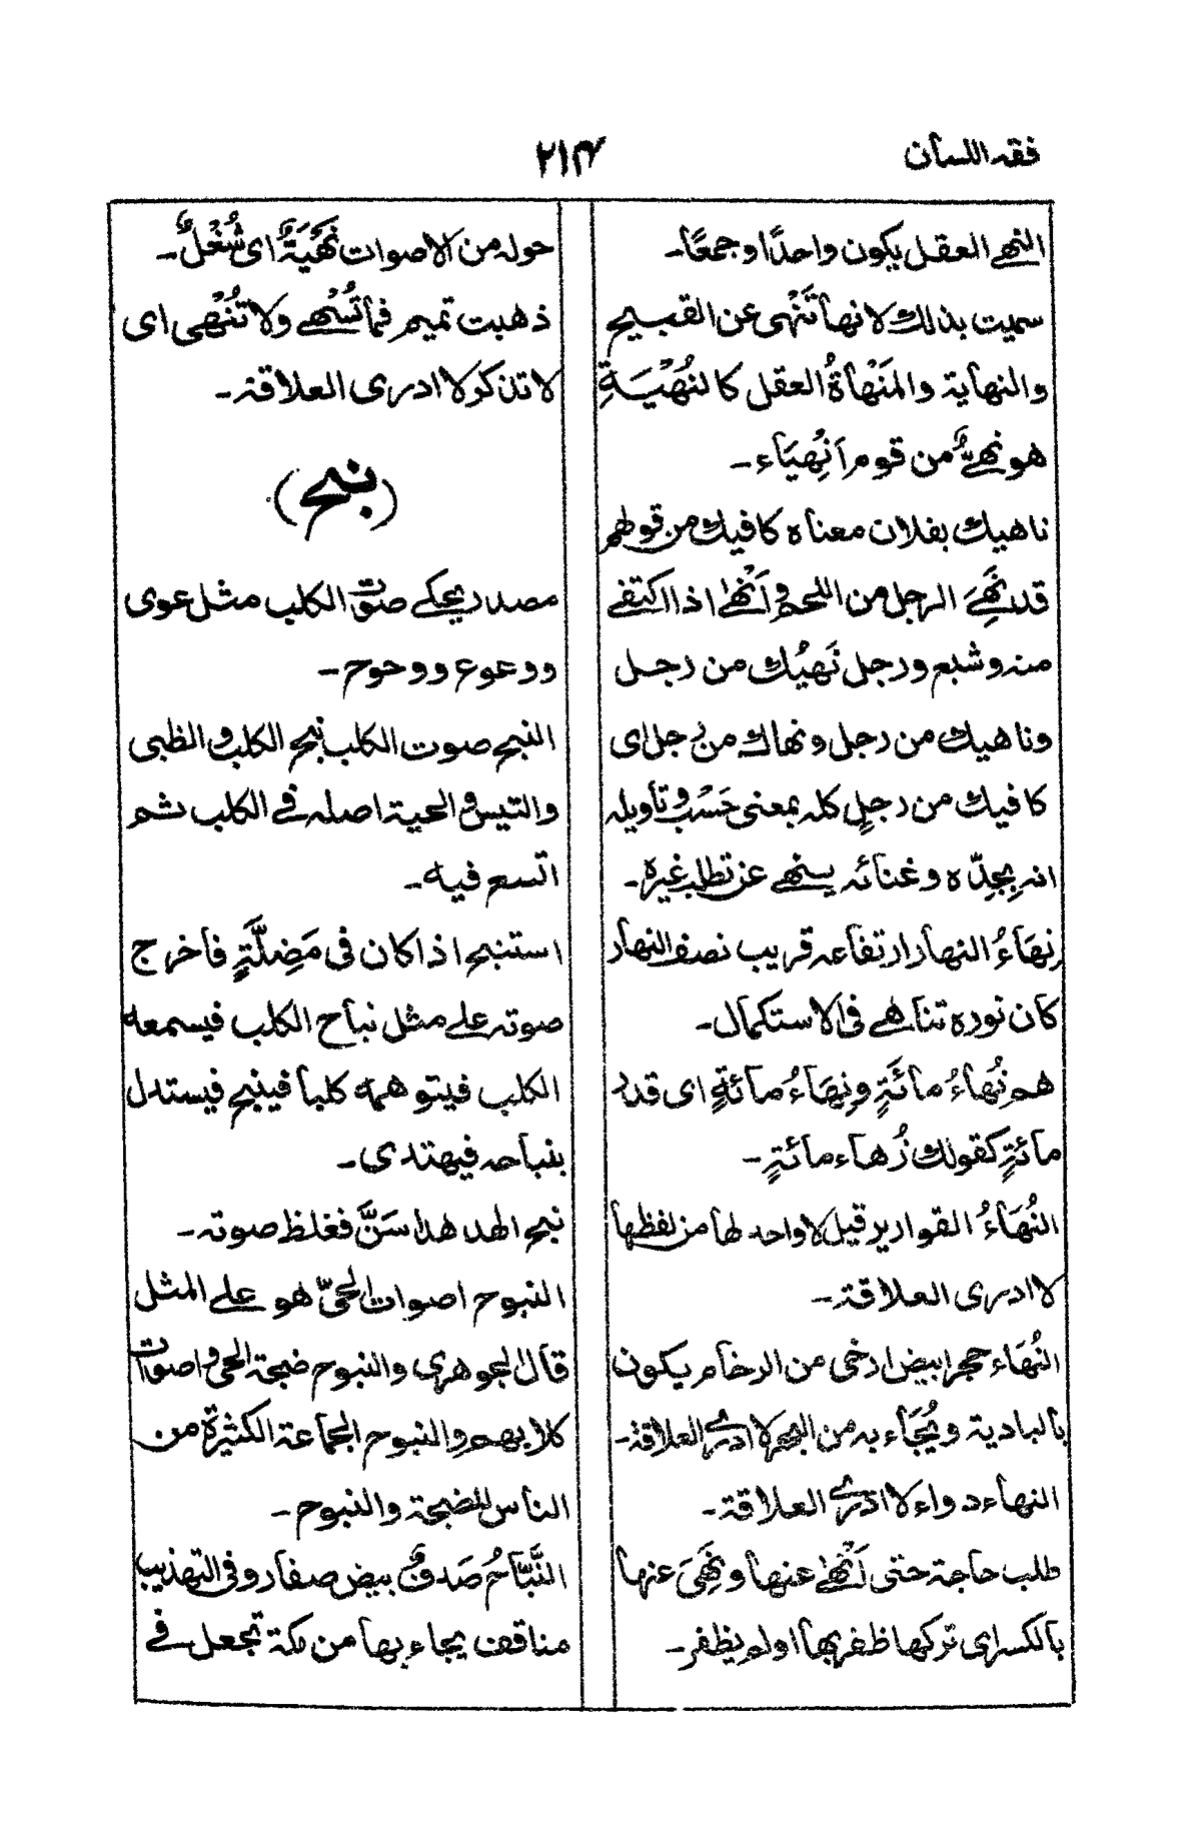 فقه اللسان
٢١٤
النهى العقل يكون واحدًا وجمعًا۔
سميت بذلك لانها تَنْهى عن القبيح
والنهاية والمَنْهاةُ العقل كالنُهْيَةِ
هو نهىٌّ من قوم اَنْهِيَاء۔
ناهيك بفلان معناه كافيك من قولهم
قد نَهِىَ الرجل من اللحم و اَنْهىٰ اذا اكتفى
منه وشبع ورجل نَهْيُك من رجل
وناهيك من رجل ونهاك من رجل اى
كافيك من رجلٍ كله بمعنى حَسْب وتأويله
انه بجِدّه وغنائه ينهى عن تطلب غيره۔
نِهَاءُ النهار ارتفاعه قريب نصف النهار
كان نوره تناهى فى الاستكمال۔
هم نُهاءُ مائَةٍ ونِهَاءُ مائةٍ اى قدر
مائةٍ كقولك زُهاء مائةٍ۔
النُهَاءُ القوارير قيل لا واحد لها من لفظها
لا ادرى العلاقة۔
النُهَاء حجر ابيض ارخى من الرخام يكون
بالبادية ويُجَاء به من البحر لا ادرى العلاقة۔
النهاء دواء لا ادرى العلاقة۔
طلب حاجة حتى اَنْهىٰ عنها ونَهِىَ عنها
بالكسر اى تركها ظفر بها اولم يظفر۔
حوله من الاصوات نُهْيَةٌ اى شُغْلٌ۔
ذهبت تميم فما تُسْهى ولا تُنْهى اى
لا تذكر لا ادرى العلاقة۔
(نبح)
مصدر يحكى صوت الكلب مثل عوى
ووعوع ووحوح۔
النبح صوت الكلب نبح الكلب والظبى
والتيس والحية اصله فى الكلب ثم
اتسع فيه۔
استنبح اذا كان فى مَضِلَّةٍ فاخرج
صوته على مثل نباح الكلب فيسمعه
الكلب فيتوهمه كلبا فينبح فيستدل
بنباحه فيهتدى۔
نبح الهدهد اسَنَّ فغلظ صوته۔
النبوح اصوات الحىّ هو على المثل
قال الجوهرى والنبوح ضجة الحى واصوات
كلابهم والنبوح الجماعة الكثيرة من
الناس للضجة والنبوح۔
النَّبَّاحُ صَدَفٌ بيض صغار وفى التهذيب
مناقف يجاء بها من مكة تجعل فى